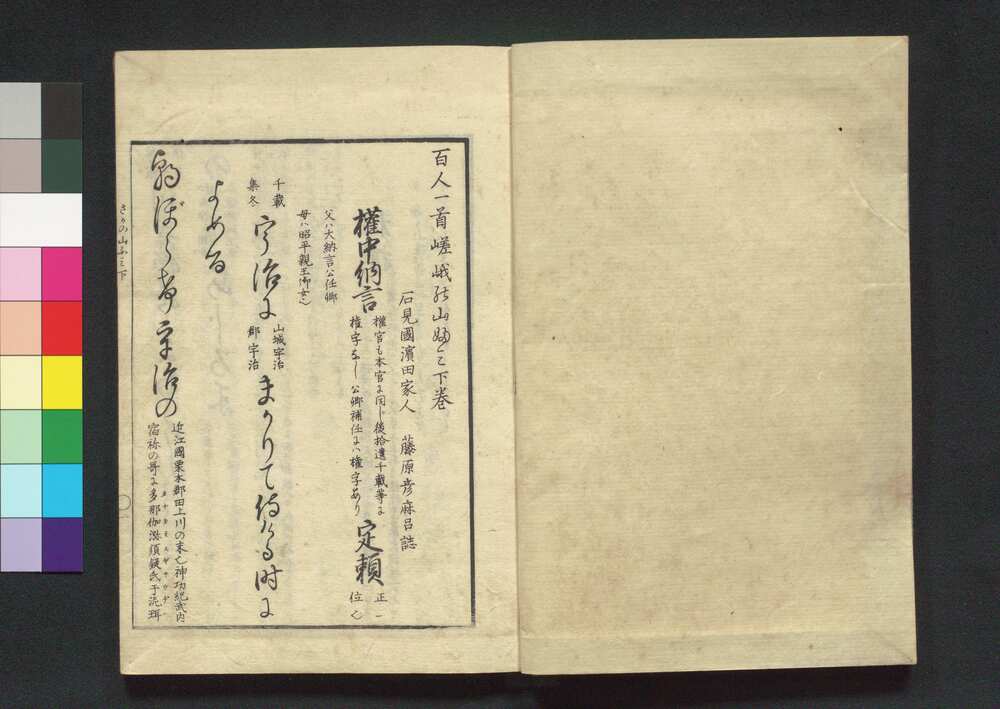 百人一首嵯峨の山ふミ下巻
石見國濱田家人 藤原彦麻呂誌
權中納言
權官も本官に同し後拾遺千載等に
権字なし公卿補任にハ権字あり
定頼
正一
位也
父ハ大納言公任卿
母ハ昭平親王御女也
千載
集冬
宇治に
山城宇治
郡宇治
まかりて侍ける時に
よめる
朝ぼらけ宇治の
近江國栗本郡田上川の末也神功紀武内
宿祢の哥に多那伽瀰須疑氏于泥珥
さかの山ふミ下